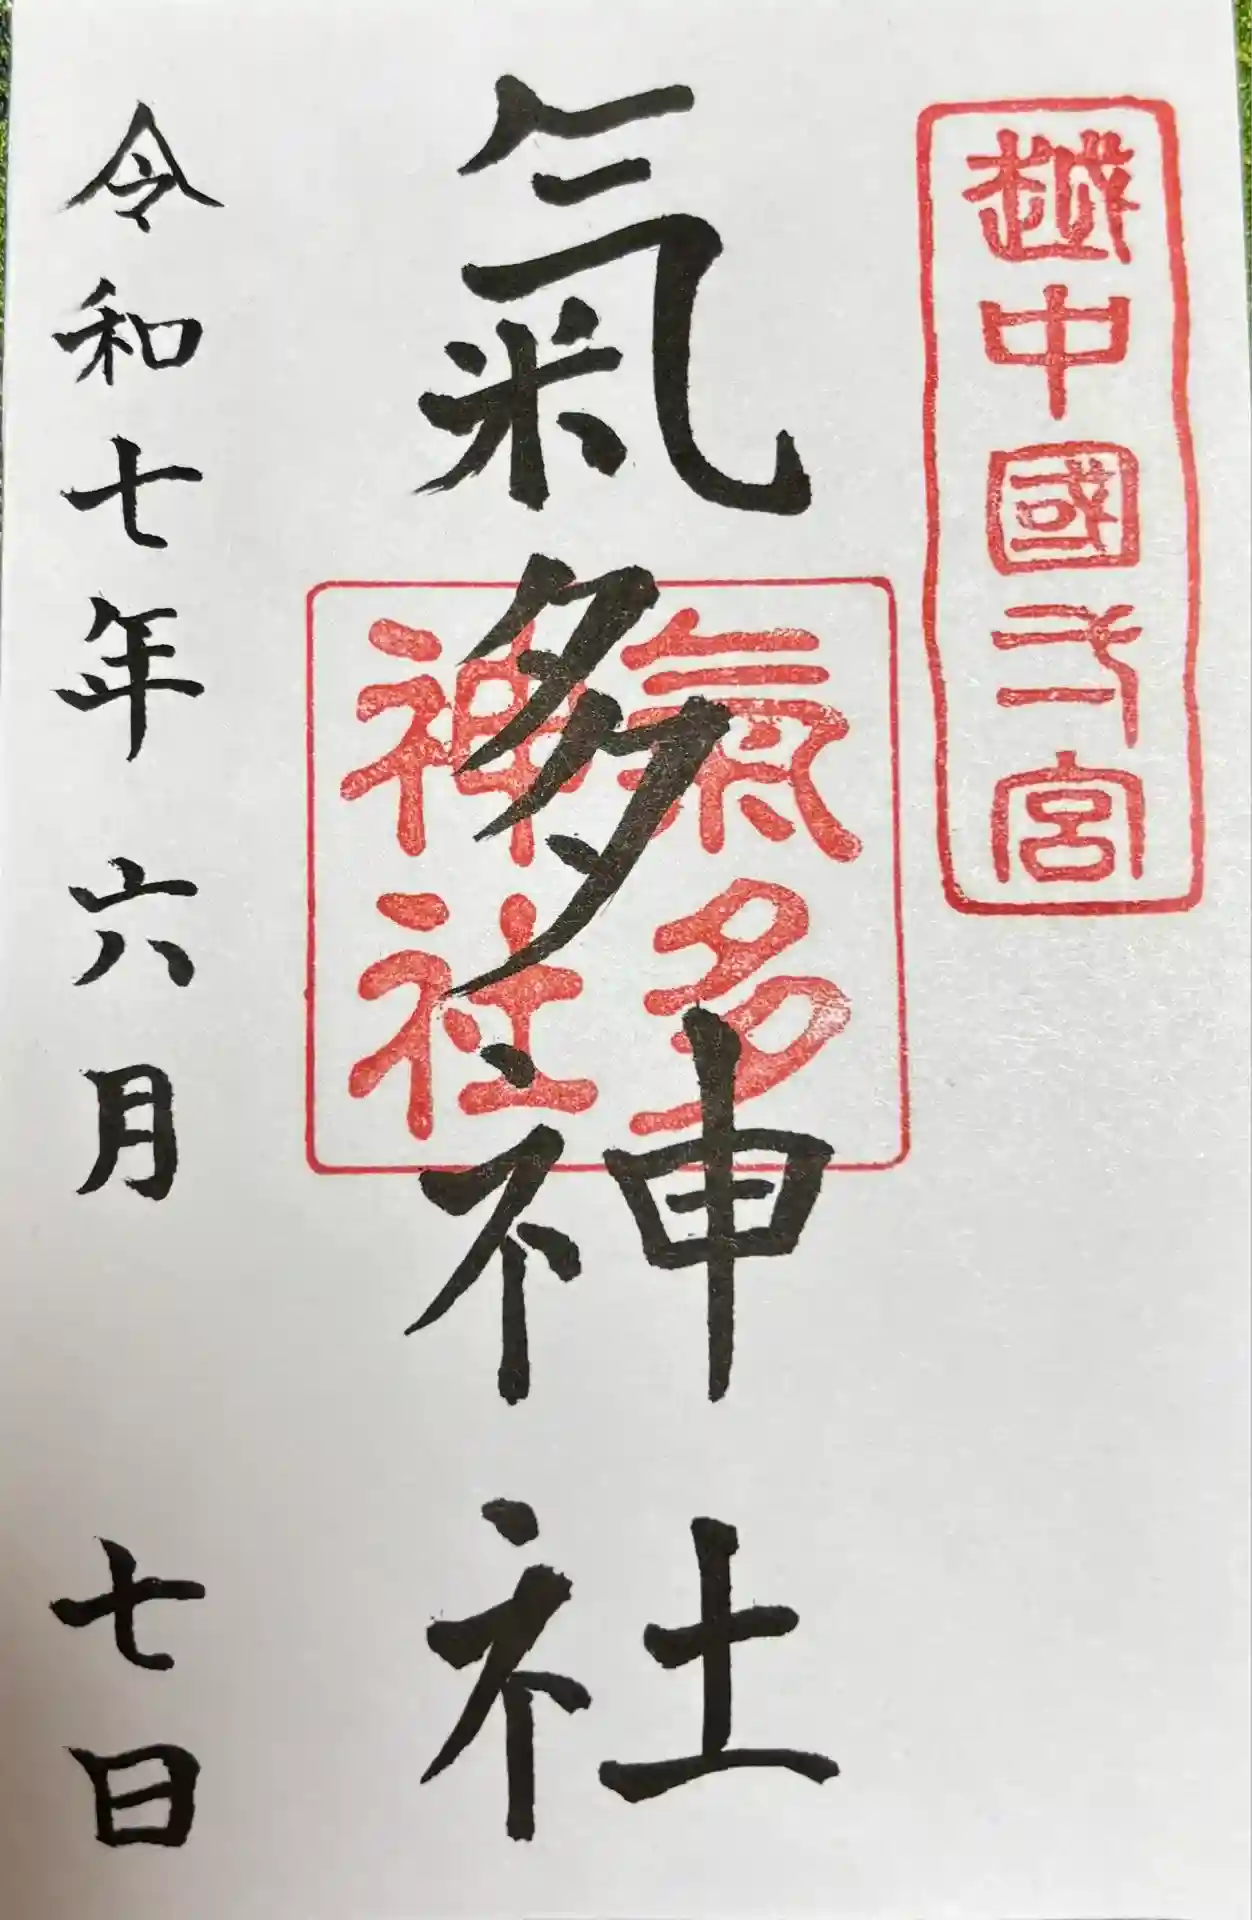 越中國弌宮
氣多神社
氣多
神社
令和七年六月七日